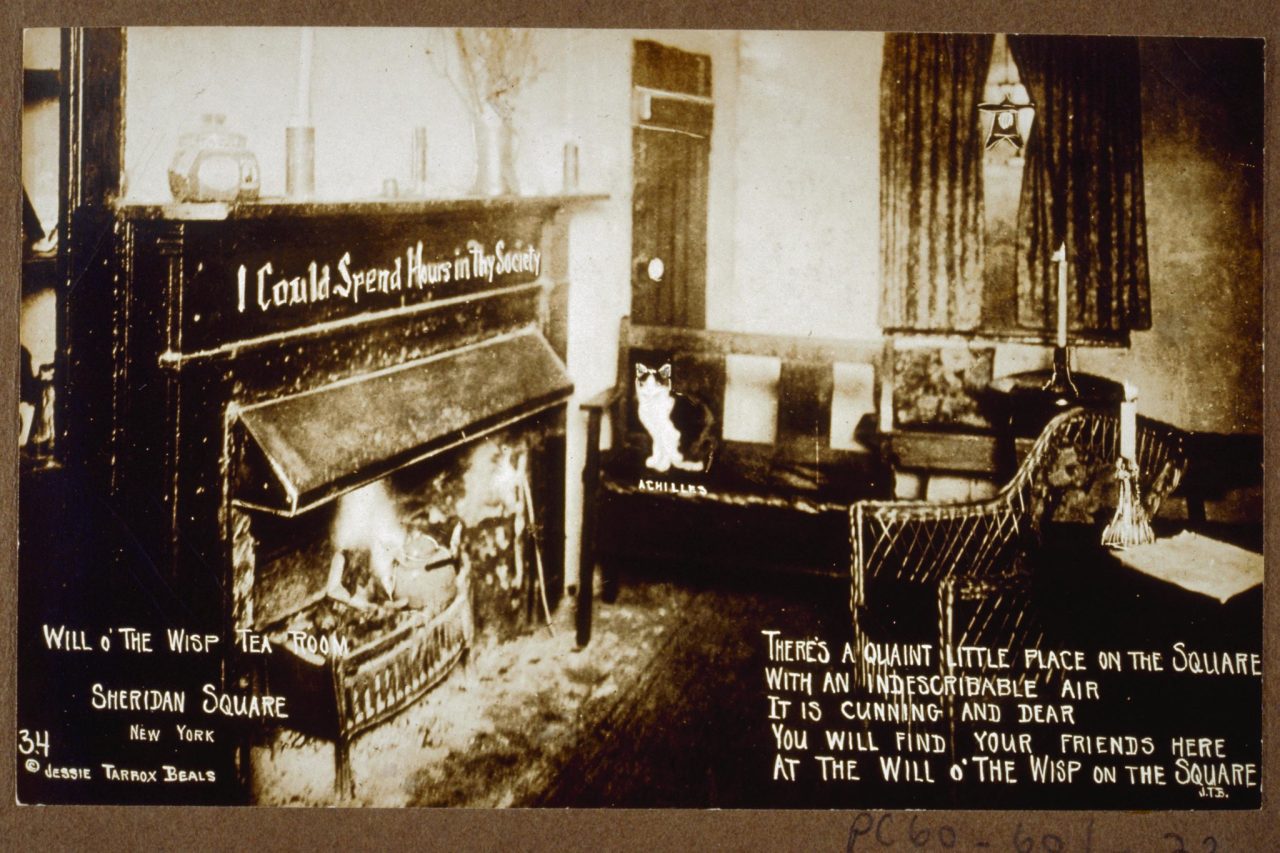 I Could Spend Hours in Thy Society
ACHILLES
WILL O' THE WISP TEA ROOM
SHERIDAN SQUARE
NEW YORK
34
© JESSIE TARBOX BEALS
THERE'S A QUAINT LITTLE PLACE ON THE SQUARE
WITH AN INDESCRIBABLE AIR
IT IS CUNNING AND DEAR
YOU WILL FIND YOUR FRIENDS HERE
AT THE WILL O' THE WISP ON THE SQUARE
J.T.B.
PC60-60